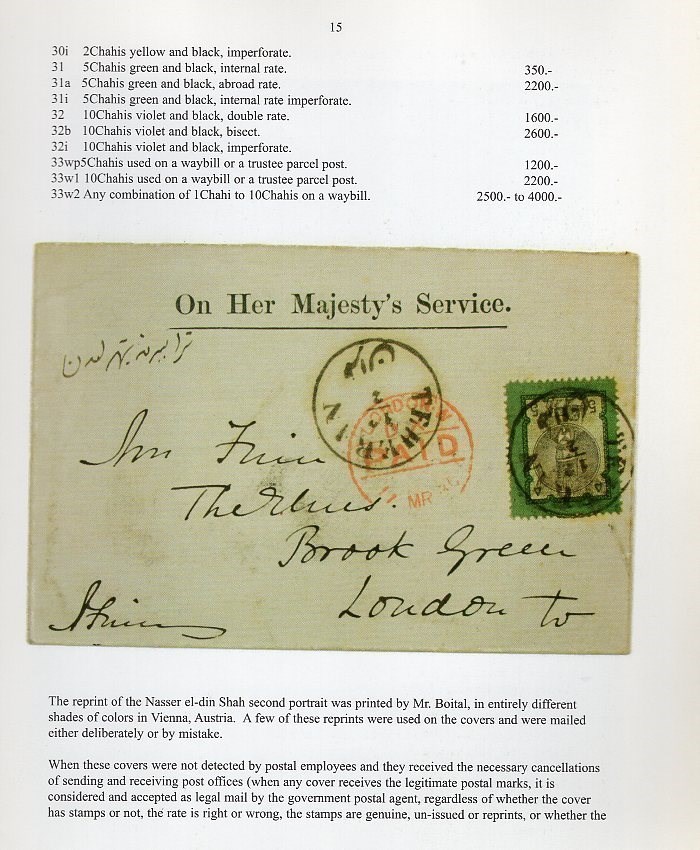 15
30i 2Chahis yellow and black, imperforate.
31 5Chahis green and black, internal rate. 350.-
31a 5Chahis green and black, abroad rate. 2200.-
31i 5Chahis green and black, internal rate imperforate.
32 10Chahis violet and black, double rate. 1600.-
32b 10Chahis violet and black, bisect. 2600.-
32i 10Chahis violet and black, imperforate.
33wp5Chahis used on a waybill or a trustee parcel post. 1200.-
33w1 10Chahis used on a waybill or a trustee parcel post. 2200.-
33w2 Any combination of 1Chahi to 10Chahis on a waybill. 2500.- to 4000.-
On Her Majesty's Service.
TEHERAN
LONDON
PAID
MR
The Elms.
Brook Green
London
The reprint of the Nasser el-din Shah second portrait was printed by Mr. Boital, in entirely different
shades of colors in Vienna, Austria. A few of these reprints were used on the covers and were mailed
either deliberately or by mistake.
When these covers were not detected by postal employees and they received the necessary cancellations
of sending and receiving post offices (when any cover receives the legitimate postal marks, it is
considered and accepted as legal mail by the government postal agent, regardless of whether the cover
has stamps or not, the rate is right or wrong, the stamps are genuine, un-issued or reprints, or whether the